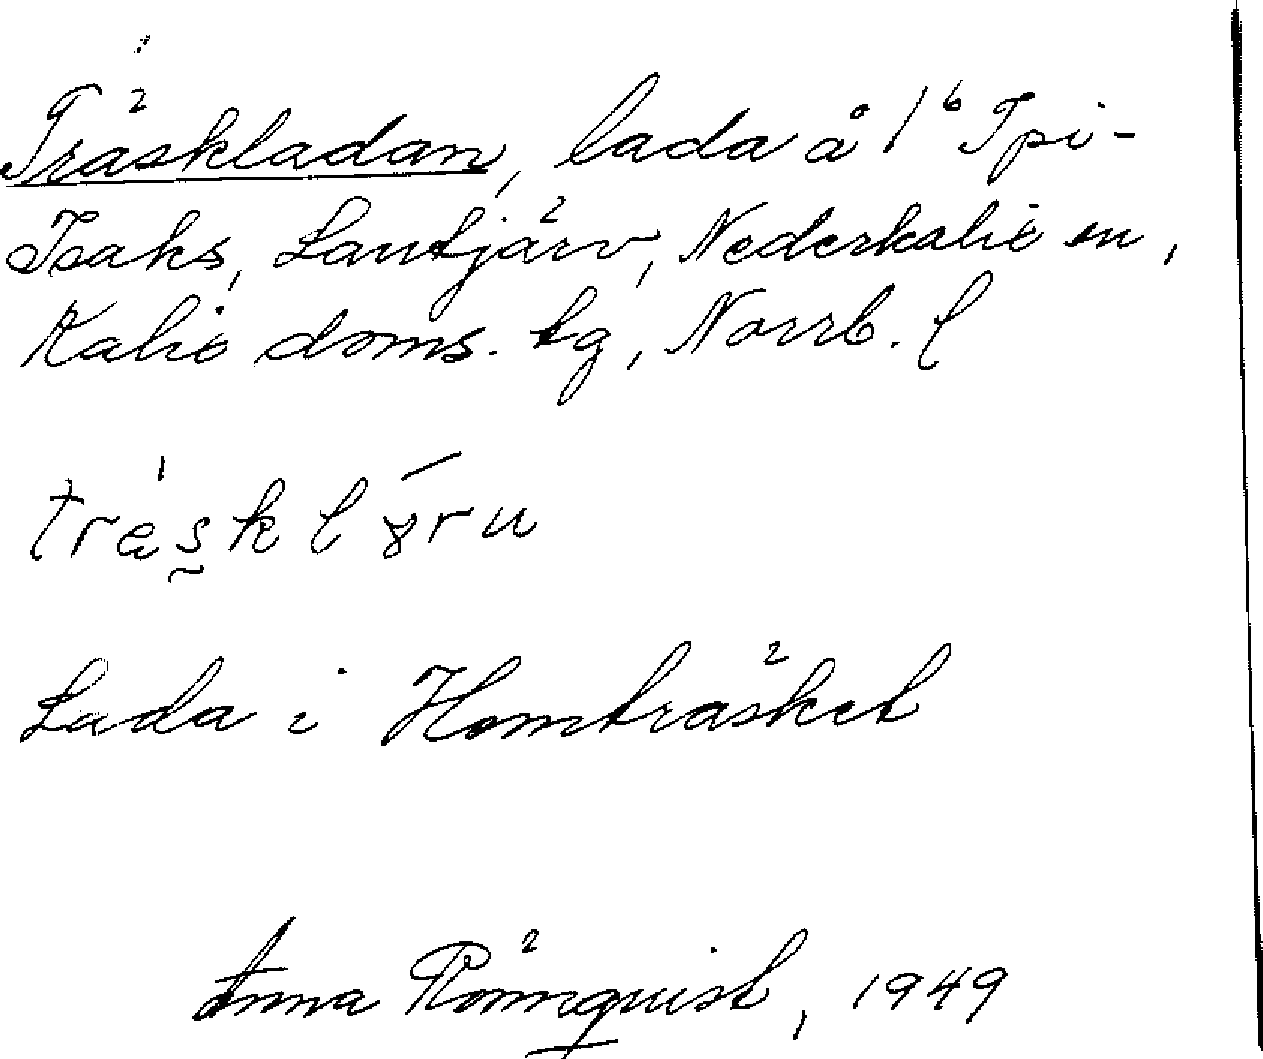 Träskladan, lada å 1⁶ Ipi-
Isaks, Lantjärv, Nederkalix sn,
Kalix doms. tg, Norrb. l
Lada i Homträsket
Anna Rönnquist, 1949